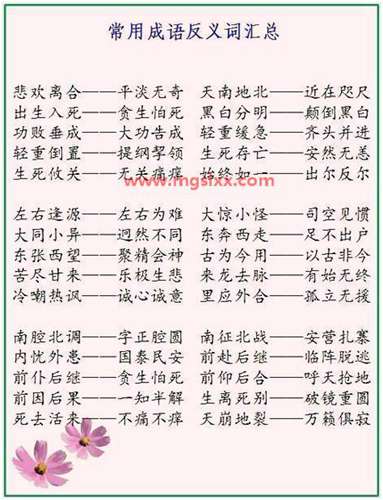 常用成语反义词汇总
悲欢离合——平淡无奇 天南地北——近在咫尺
出生入死——贪生怕死 黑白分明——颠倒黑白
功败垂成——大功告成 轻重缓急——齐头并进
轻重倒置——提纲挈领 生死存亡——安然无恙
生死攸关——无关痛痒 始终如一——出尔反尔
www.mgsfxx.com
左右逢源——左右为难 大惊小怪——司空见惯
大同小异——迥然不同 东奔西走——足不出户
东张西望——聚精会神 古为今用——以古非今
苦尽甘来——乐极生悲 来龙去脉——有始无终
冷嘲热讽——诚心诚意 里应外合——孤立无援
南腔北调——字正腔圆 南征北战——安营扎寨
内忧外患——国泰民安 前赴后继——临阵脱逃
前仆后继——贪生怕死 前仰后合——呼天抢地
前因后果——一知半解 生离死别——破镜重圆
死去活来——不痛不痒 天崩地裂——万籁俱寂